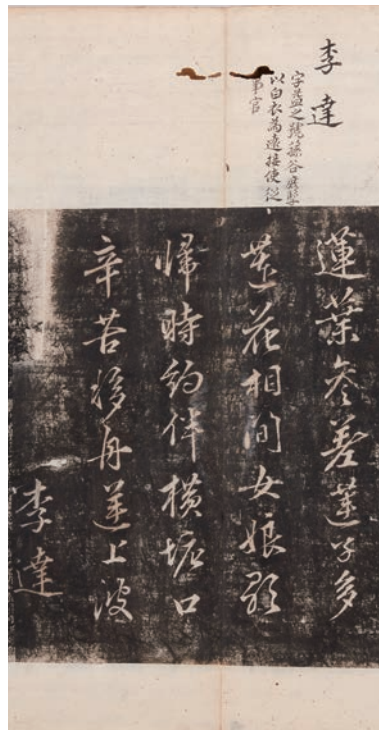 李達
字益之號蓀谷
以白衣為遠接使從
事官
蓮葉參差蓮子多
蓮花相間女娘歌
歸時約伴橫塘口
辛苦移舟逆上波
李達